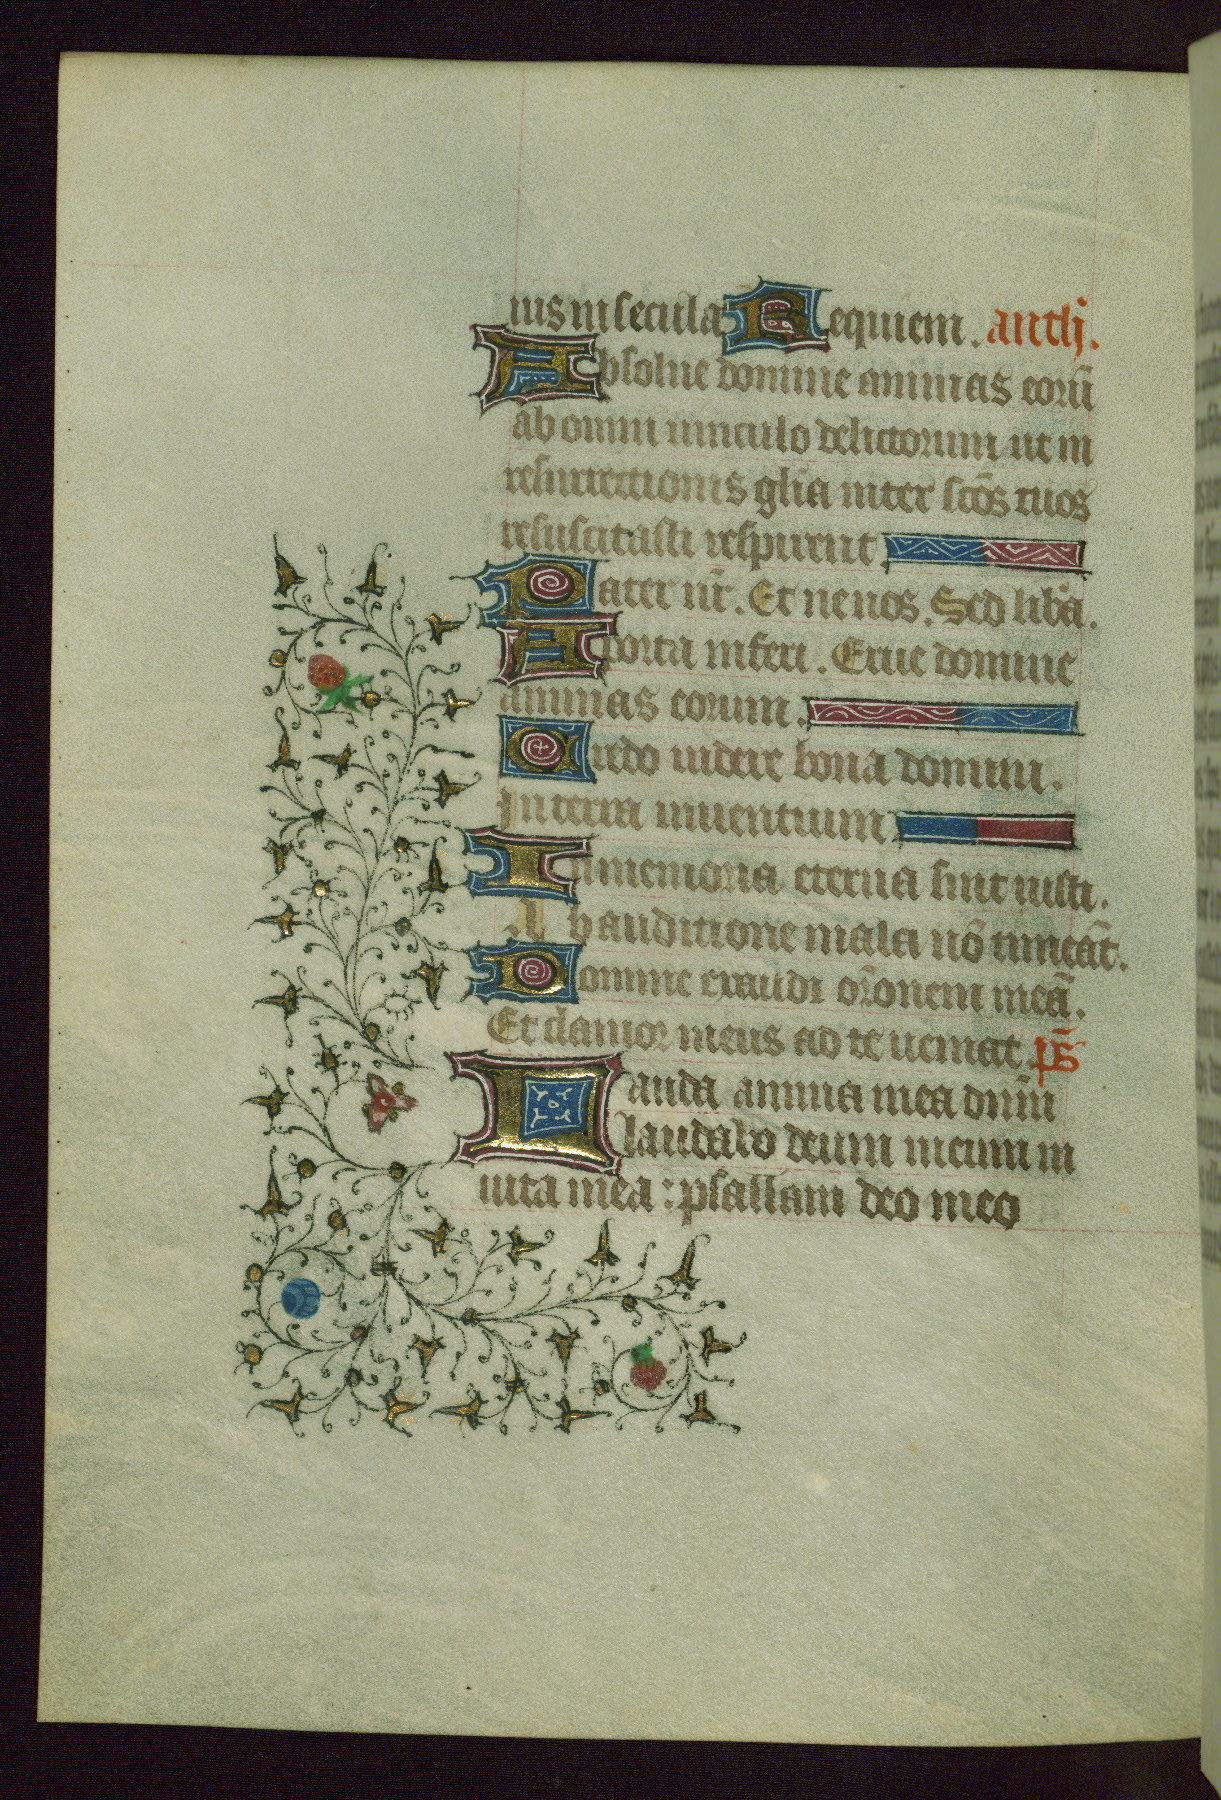 ius in secula Requiem. antħ.
Absolue domine animas eorū
ab omni uinculo delictorum ut in
resurrectionis glīa inter scōs tuos
resuscitasti respirent
Pater nr̄. Et ne nos. Sed liba.
A porta inferi. Erue domine
animas eorum.
Credo uidere bona domini.
In terra uiuentium
In memoria eterna sint iusti.
Ab auditione mala nō timeāt.
Domine exaudi ōronem meā.
Et clamor meus ad te ueniat ps̄
Lauda anima mea dnm̄
laudabo deum meum in
uita mea : psallam deo meo